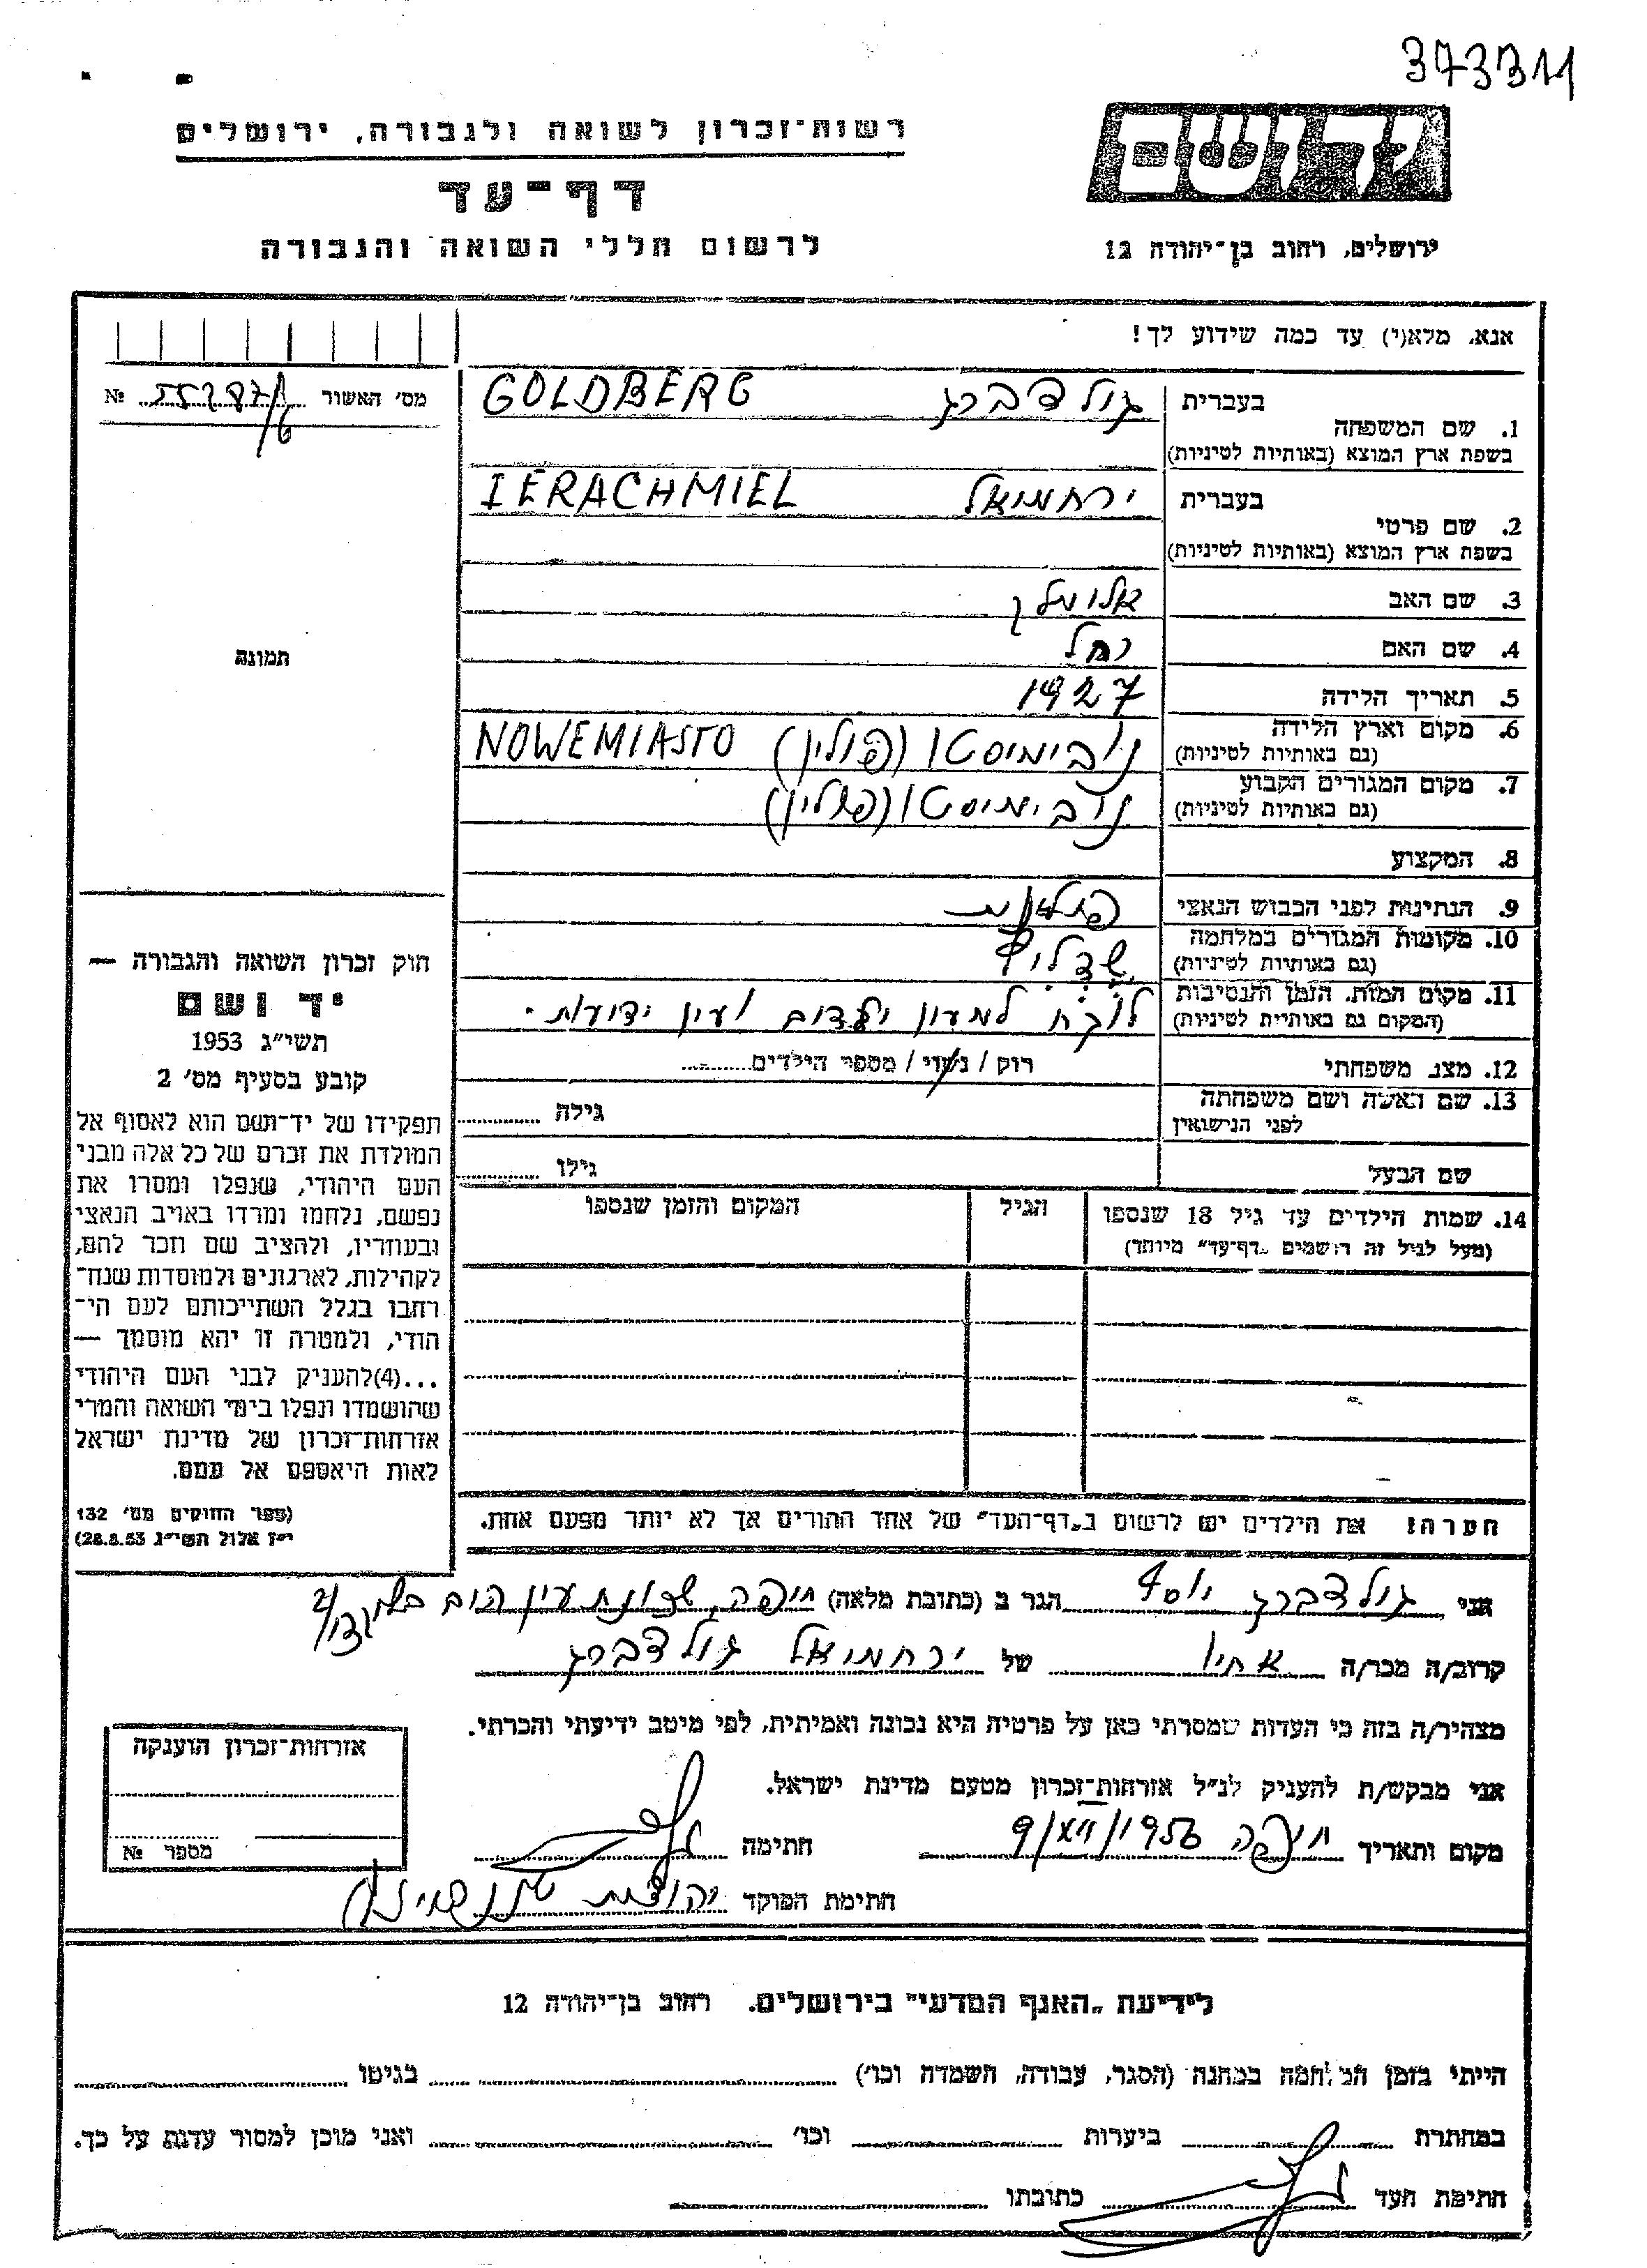 373711
רשות־זכרון לשואה ולגבורה, ירושלים
דף־עד
לרשום חללי השואה והגבורה
יד ושם
ירושלים, רחוב בן־יהודה 12
אנא, מלא(י) עד כמה שידוע לך!
מס' האשור № 55287/6
בעברית גולדברג GOLDBERG
1. שם המשפחה
בשפת ארץ המוצא (באותיות לטיניות)
בעברית ירחמיאל IERACHMIEL
2. שם פרטי
בשפת ארץ המוצא (באותיות לטיניות)
3. שם האב אלימלך
4. שם האם רחל
5. תאריך הלידה 1927
6. מקום וארץ הלידה נובימיסטו (פולין) NOWEMIASTO
(גם באותיות לטיניות)
7. מקום המגורים הקבוע נובימיסטו (פולין)
(גם באותיות לטיניות)
8. המקצוע
9. הנתינות לפני הכבוש הנאצי פולנית
10. מקומות המגורים במלחמה
(גם באותיות לטיניות)
11. מקום המות, הזמן והנסיבות לוקח למעון ילדים ואין ידיעות.
(המקום גם באותיות לטיניות)
12. מצב משפחתי רוק / נשוי / מספר הילדים
13. שם האשה ושם משפחתה גילה
לפני הנישואין
שם הבעל גילו
14. שמות הילדים עד גיל 18 שנספו הגיל המקום והזמן שנספו
(מעל לגיל זה רושמים „דף־עד" מיוחד)
הערה! את הילדים יש לרשום ב„דף־העד" של אחד ההורים אך לא יותר מפעם אחת.
תמונה
חוק זכרון השואה והגבורה —
יד ושם
תשי"ג 1953
קובע בסעיף מס' 2
תפקידו של יד־ושם הוא לאסוף אל
המולדת את זכרם של כל אלה מבני
העם היהודי, שנפלו ומסרו את
נפשם, נלחמו ומרדו באויב הנאצי
ובעוזריו, ולהציב שם וזכר להם,
לקהילות, לארגונים ולמוסדות שנח־
רבו בגלל השתייכותם לעם הי־
הודי, ולמטרה זו יהא מוסמך —
...(4)להעניק לבני העם היהודי
שהושמדו ונפלו בימי השואה והמרי
אזרחות־זכרון של מדינת ישראל
לאות היאספם אל עמם.
(ספר החוקים מס' 132
י"ז אלול תשי"ג 28.8.53)
אני גולדברג יוסף הגר ב (כתובת מלאה) חיפה, שכונת עין הים
קרוב/ה מכר/ה אחיו של ירחמיאל גולדברג
מצהיר/ה בזה כי העדות שמסרתי כאן על פרטיה היא נכונה ואמיתית, לפי מיטב ידיעתי והכרתי.
אני מבקש/ת להעניק לנ"ל אזרחות־זכרון מטעם מדינת ישראל.
מקום ותאריך חיפה 9/XII/1956 חתימה
חתימת הפוקד יהודית
אזרחות־זכרון הוענקה
מספר №
לידיעת „האגף המדעי" בירושלים, רחוב בן־יהודה 12
הייתי בזמן המלחמה במחנה (הסגר, עבודה, השמדה וכו') בגיטו
במחתרת ביערות וכו' ואני מוכן למסור עדות על כך.
חתימת העד כתובתו